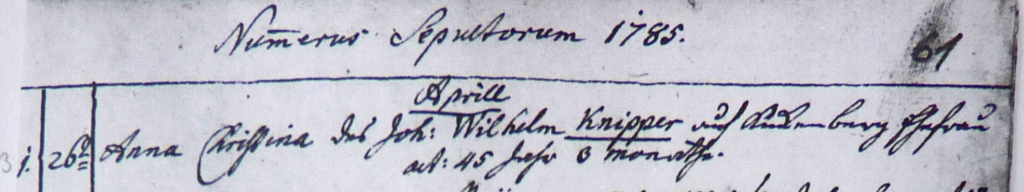 Num̄erus Sepultorum 1785. 61
Aprill
1. 26t Anna Christina des Joh: Wilhelm Knipper auf Ehefrau
aet: 45 Jahr 3 monathe.